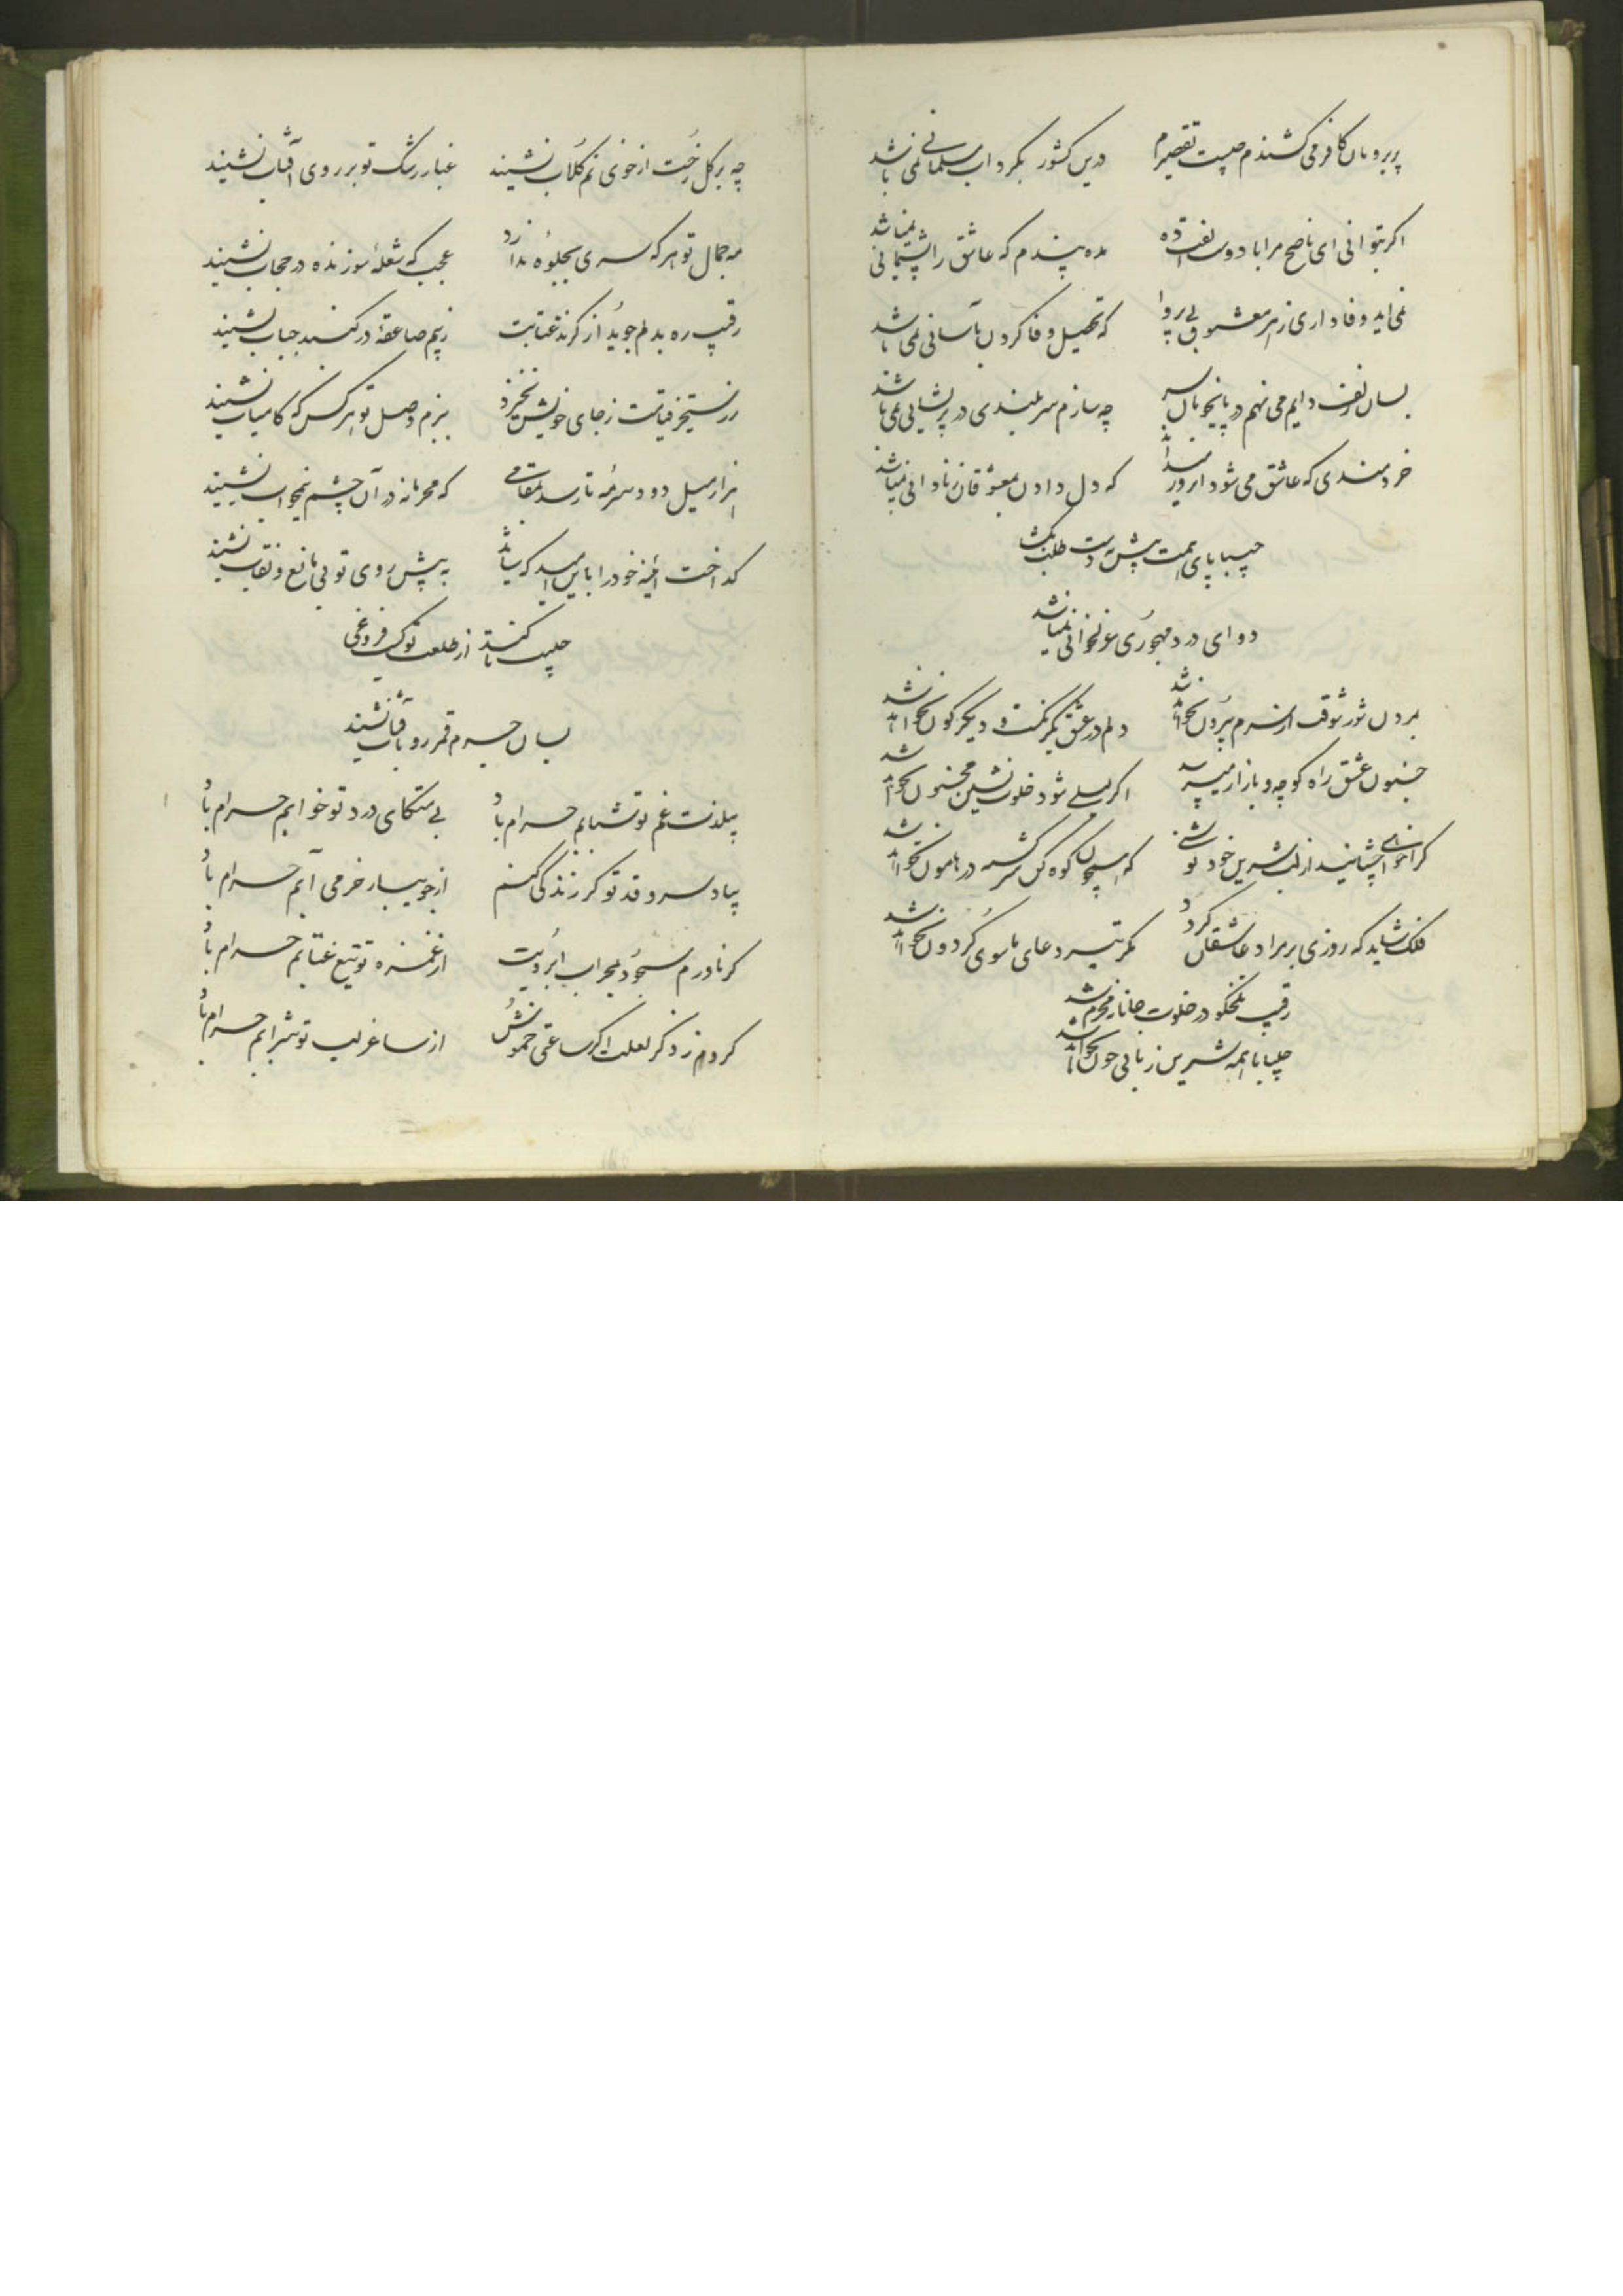 پریرویان کافر می کشندم چیست تقصیرم
درین کشور مگر داب مسلمانی نمی باشد
اگر بتوانی ای ناصح مرا با دوست الفت ده
مده پندم که عاشق را پشیمانی نمیباشد
نمی اید وفاداری ز هر معشوق بی پروا
که تحصیل وفا کردن بآسانی نمی باشد
بسان زلف دایم می نهم در پای خوبان سر
چه سازم سربلندی در پریشانی نمی باشد
خردمندی که عاشق می شود
که دل دادن بمعشوقان ز نادانی نمیباشد
چلیپا پای همت پیش نه دست طلب بکشا
دوای درد مهجوری غزلخوانی نمیباشد
ز دل شور شوقت از سرم بیرون نخواهد شد
دلم در عشق یکرنگست و دیگرگون نخواهد شد
جنون عشق راه کوچه و بازار میپرسد
اگر لیلی شود خلوت نشین مجنون نخواهد شد
کرا خواهی چشانید از لب شیرین خود نوشی
که همچون کوه کن سرگشته در هامون نخواهد شد
فلک شاید که روزی بر مراد عاشقان گردد
مگر تیر دعای ما سوی گردون نخواهد شد
رقیب تلخگو در خلوت جانانه محرم شد
چلیپا با همه شیرین زبانی چون نخواهد شد
چه بر گل رخت از خوی نم گلاب نشیند
غبار رشک تو بر روی آفتاب نشیند
مه جمال تو هر که سری بجلوه ندارد
عجب که شعله سوزنده در حجاب نشیند
رقیب ره بدلم جوید از گزند عتابت
ز بیم صاعقه در گنبد حباب نشیند
ز رستخیز قیامت ز جای خویش نخیزد
ببزم وصل تو هر کس که کامیاب نشیند
هزار میل دود سرمه تا رسد بمقامی
که محرمانه در آن چشم نیمخواب نشیند
گداخت آئینه خود را باین امید که شاید
به پیش روی تو بی مانع و نقاب نشیند
چلیپ از طلعت تو کسب فروغی
بسان جرم قمر رو بافتاب نشیند
بیلذت غم تو شبابم حرام باد
بی متکای درد تو خوابم حرام باد
بیاد سرو قد تو گر زندگی کنم
از جویبار خرمی آبم حرام باد
گر نادرم سجود بمحراب ابرویت
از غمزه تو تیغ عتابم حرام باد
گردم ز ذکر لعلت اگر ساعتی خموش
از ساغر لب تو شرابم حرام باد